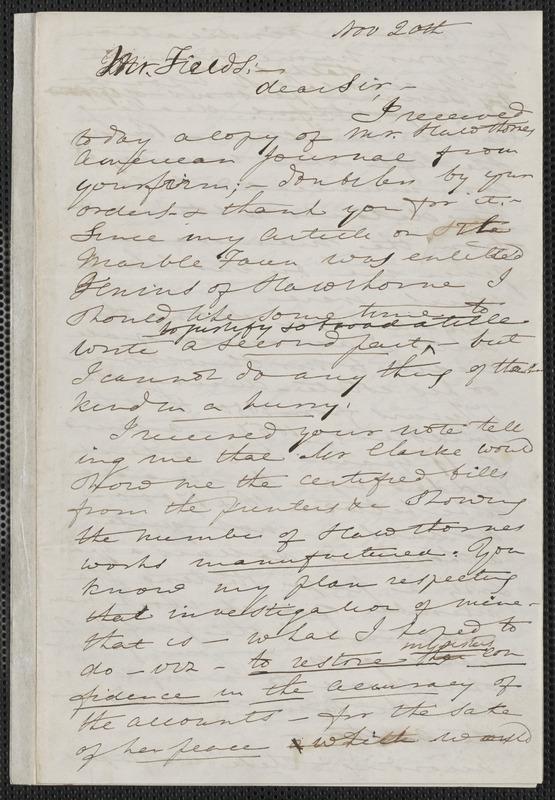 Nov 20th
Mr. Fields;—
dear Sir,—
I received
today a copy of Mr. Hawthornes
American Journal from
your firm;— doubtless by your
orders & thank you for it;—
Since my article on the
Marble Faun was entitled
Genius of Hawthorne I
should like some time to
to justify so broad a title
write a second part,— but
I cannot do any thing of that
kind in a hurry.
I received your note tell
ing me that Mr Clarke would
show me the certified bills
from the printers &c showing
the number of Hawthornes
works manufactured. You
know my plan respecting
that investigation of mine—
that is — what I hoped to
my sisters
do — viz — to restore her con
fidence in the accuracy of
the accounts — for the sake
of her peace which would